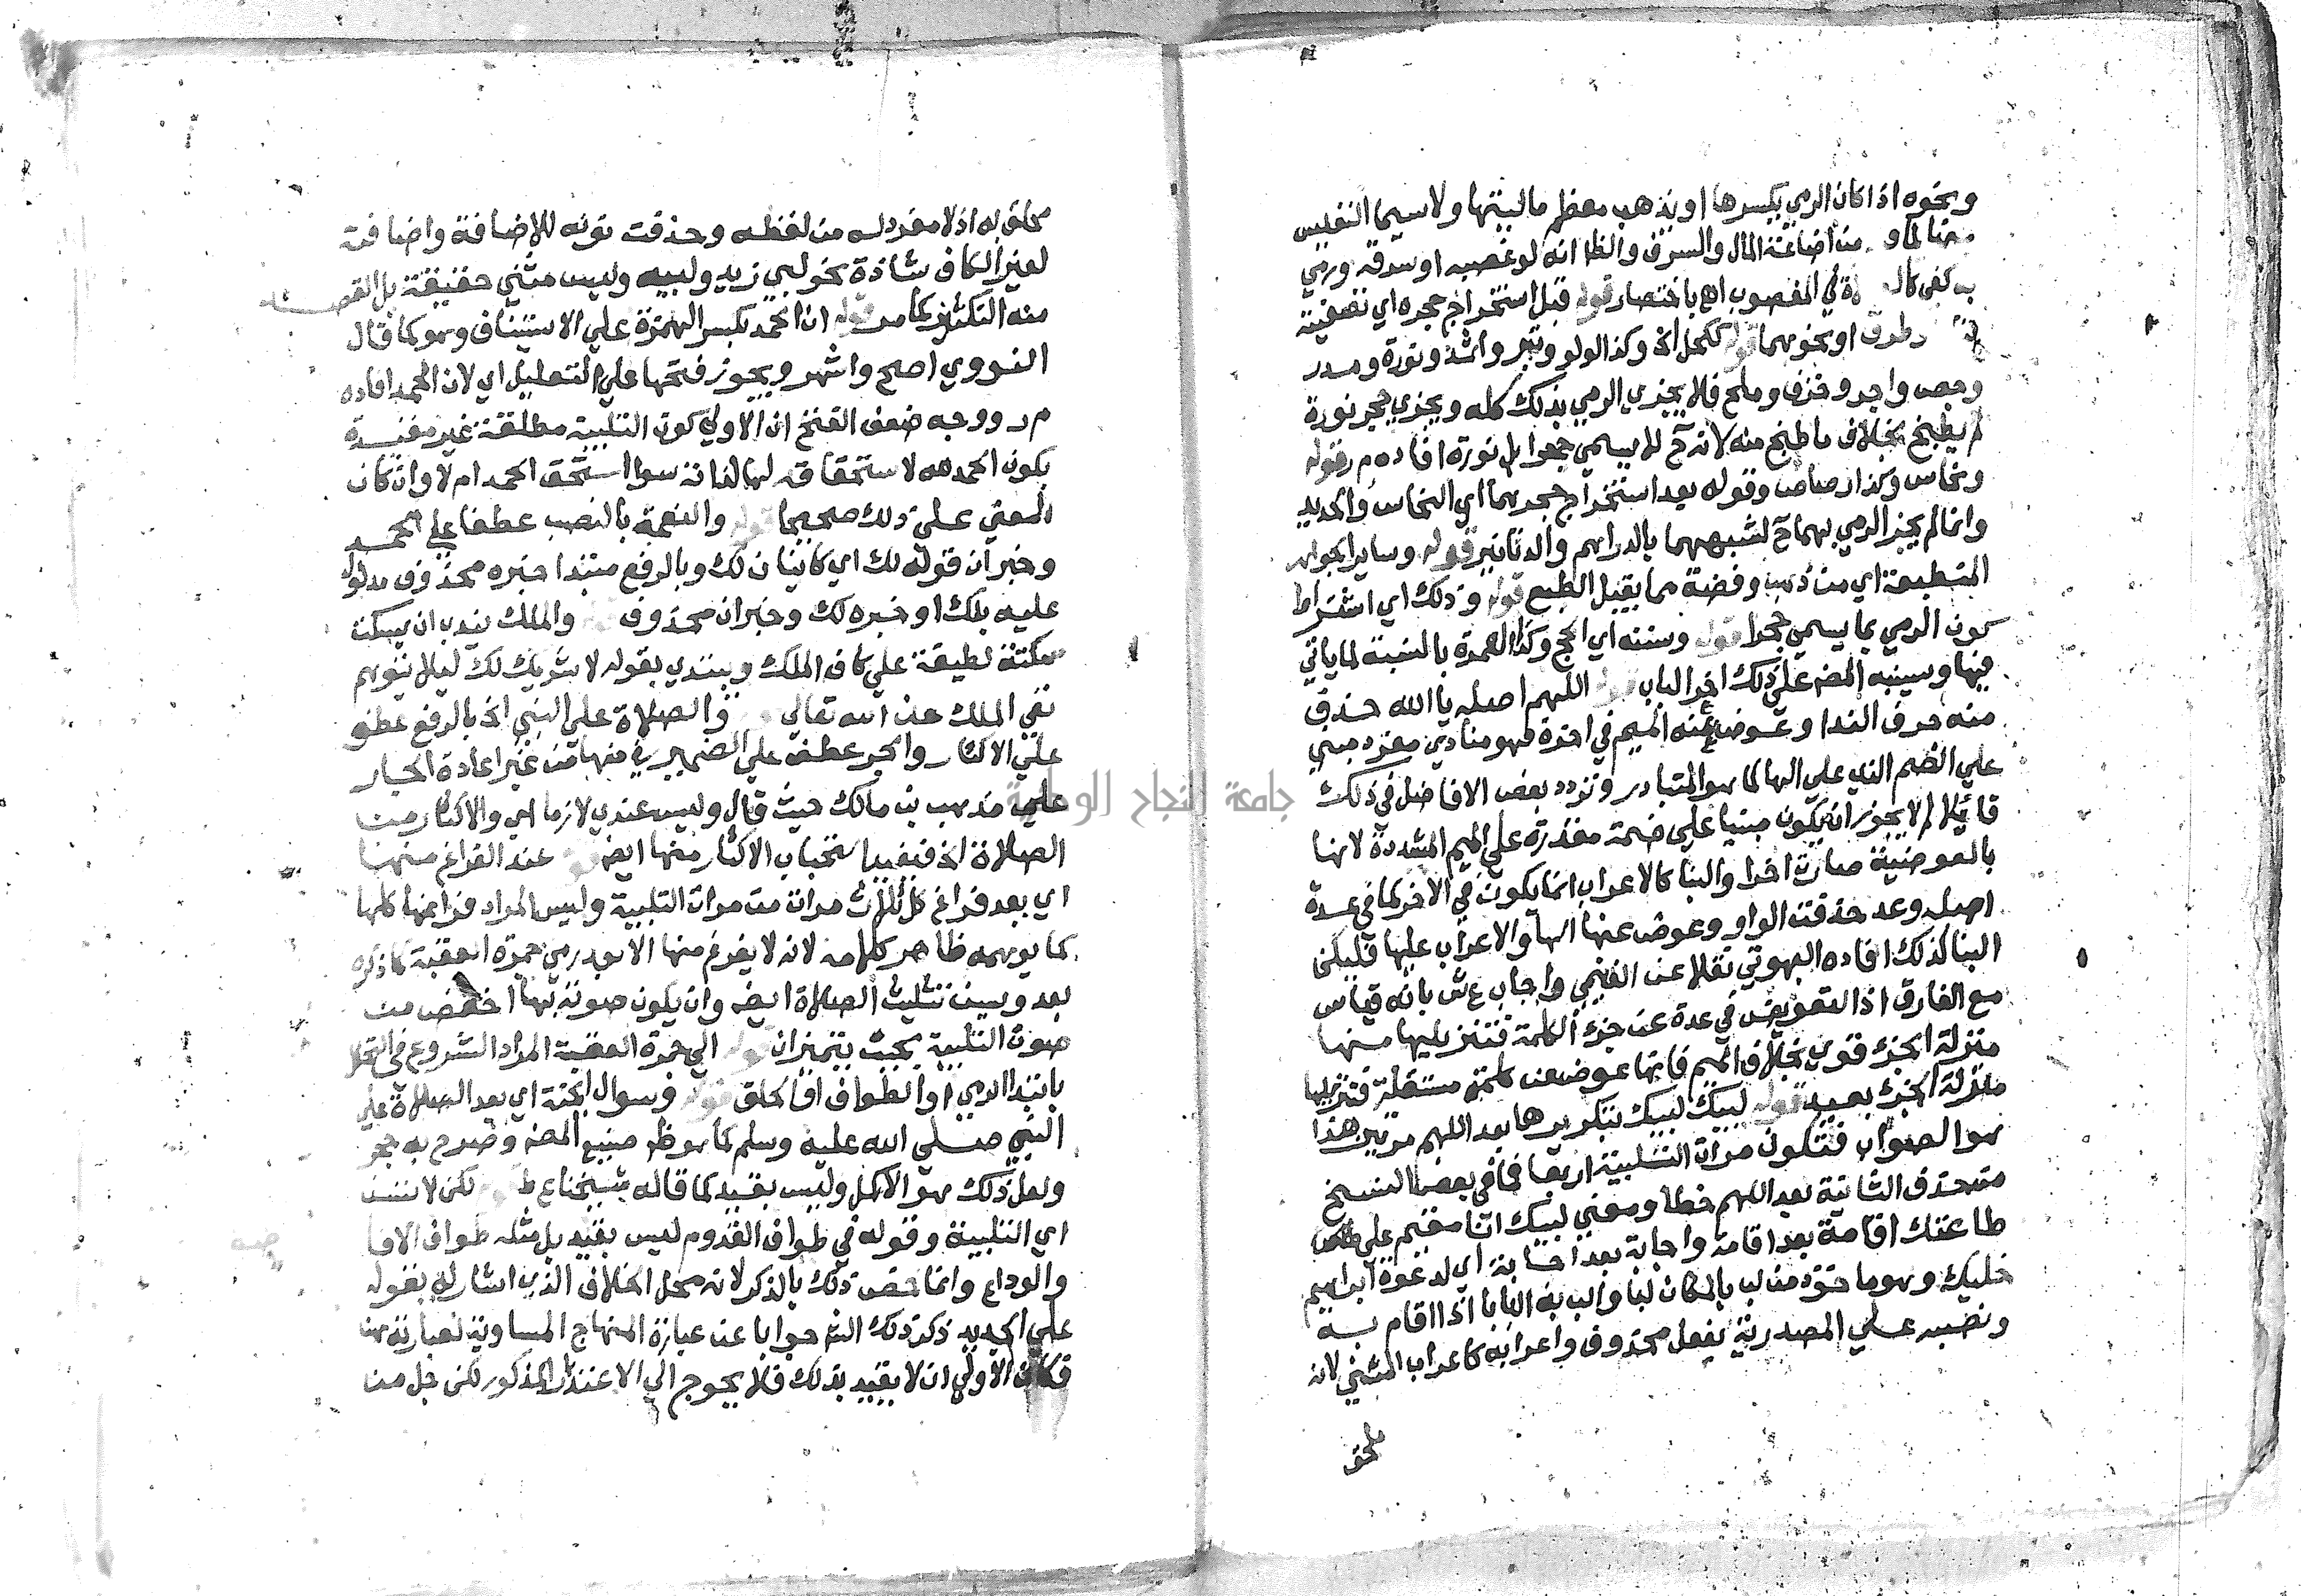 ونحوه اذا كان الرمي يكسرها او يذهب معظم ماليتها ولا سيما النفيس
من اضاعة المال والسرف والظا انه لو غصبه او سرقه ورمي
به كفى في المغصوب اه باختصار قوله قبل استخراج حجره اي تصفيته
او نحوهما قوله ككحل الخ وكذا لولو وتبر واثمد ونورة ومدر
وجص واجر وخزف وملح فلا يجزي الرمي بذلك كله ويجزي حجر نورة
لم يطبخ بخلاف ما طبخ منه لانه ح لا يسمي حجرا بل نورة افاده م ر قوله
ونحاس وكذا رصاص وقوله بعد استخراج حجرهما اي النحاس والحديد
وانما لم يجز الرمي بهما ح لشبههما بالدراهم والدنانير قوله وساير الجواهر
المنطبعة اي من ذهب وفضة مما يقبل الطبع قوله وذلك اي اشتراط
كون الرمي بما يسمي حجرا قوله وسننه اي الحج وكذا العمرة بالنسبة لما ياتي
فيها وسينبه المص علي ذلك اخر الباب قوله اللهم اصله يا الله حذف
منه حرف الندا وعوض عنه الميم في اخره فهو منادي مفرد مبني
علي الضم الذي علي الها كما هو المتبادر وتردد بعض الافاضل في ذلك
قائلا لم لا يجوز ان يكون مبنيا علي ضمة مقدرة علي الميم المشددة لانها
بالعوضية صارت اخرا والبنا كالاعراب انما يكون في الاخر كما في عدة
اصله وعد حذفت الواو وعوض عنها الها والاعراب عليها فليكن
البنا كذلك افاده البهوتي نقلا عن الغنيمي واجاب ع ش بانه قياس
مع الفارق اذ التعويض في عدة عن جزء الكلمة فتنزيلها منها
منزلة الجزء قوي بخلاف الميم فانها عوض عن كلمة مستقلة فتنزيلها
منزلة الجزء بعيد قوله لبيك لبيك بتكريرها بعد اللهم مرتين هذا
هو الصواب فتكون مرات التلبية اربعا فما في بعض النسخ
من حذف الثانية بعد اللهم خطا ومعني لبيك انا مقيم علي
طاعتك اقامة بعد اقامة واجابة بعد اجابة اي لدعوة ابراهيم
خليك وهو ماخوذ من لب بالمكان لبا والب به البابا اذا اقام به
ونصبه علي المصدرية بفعل محذوف واعرابه كاعراب المثني لانه
ملحق
ملحق به اذ لا مفرد له من لفظه وحذفت نونه للاضافة واضافته
لغير الكاف شاذة نحو لبي زيد ولبيه وليس مثني حقيقة بل القصد
منه التكثير كما مر قوله ان الحمد بكسر الهمزة علي الاستيناف وهو كما قال
النووي اصح واشهر ويجوز فتحها علي التعليل اي لان الحمد افاده
م ر ووجه ضعف الفتح ان الاولي كون التلبية مطلقة غير مقيدة
بكون الحمد لله لاستحقاقه لها لذاته سوا استحق الحمد ام لا وان كان
المعني علي ذلك صحيحا قوله والنعمة بالنصب عطفا علي الحمد
وخبر ان قوله لك اي كائنان لك وبالرفع مبتدا خبره محذوف مدلول
عليه بلك او خبره لك وخبر ان محذوف قوله والملك يندب ان يسكت
سكتة لطيفة علي كاف الملك ويبتدي بقوله لا شريك لك ليلا يتوهم
نفي الملك عن الله تعالي قوله والصلاة علي النبي الخ بالرفع عطف
علي الاكثار والجر عطف علي الضمير في منها من غير اعادة الجار
علي مذهب بن مالك حيث قال وليس عندي لازما اي والاكثار من
الصلاة الخ فيفيد استحباب الاكثار منها ايض قوله عند الفراغ منها
اي بعد فراغ كل ثلاث مرات من مرات التلبية وليس المراد فراغها كلها
كما يوهمه ظاهر كلامه لانه لا يفرغ منها الا بعد رمي جمرة العقبة كما ذكره
بعد ويسن تثليث الصلاة ايض وان يكون صوته بها اخفض من
صوت التلبية بحيث يتميزان قوله الي جمرة العقبة المراد الشروع في التحلل
بابتدا الرمي او الطواف او الحلق قوله وسوال الجنة اي بعد الصلاة علي
النبي صلي الله عليه وسلم كما هو ظ صنيع المص وصرح به حج
ولعل ذلك هو الاكمل وليس بقيد كما قاله شيخنا ع ط قوله لكن لا تسن
اي التلبية وقوله في طواف القدوم ليس بقيد بل مثله طواف الافا
والوداع وانما خص ذلك بالذكر لانه محل الخلاف الذي اشار له بقوله
علي الجديد ذكر ذلك الش جوابا عن عبارة المنهاج المساوية لعبارته هنا
فكان الاولي ان لا يقيد بذلك فلا يحوج الي الاعتذار المذكور لكن جل من
جامعة النجاح الوطنية